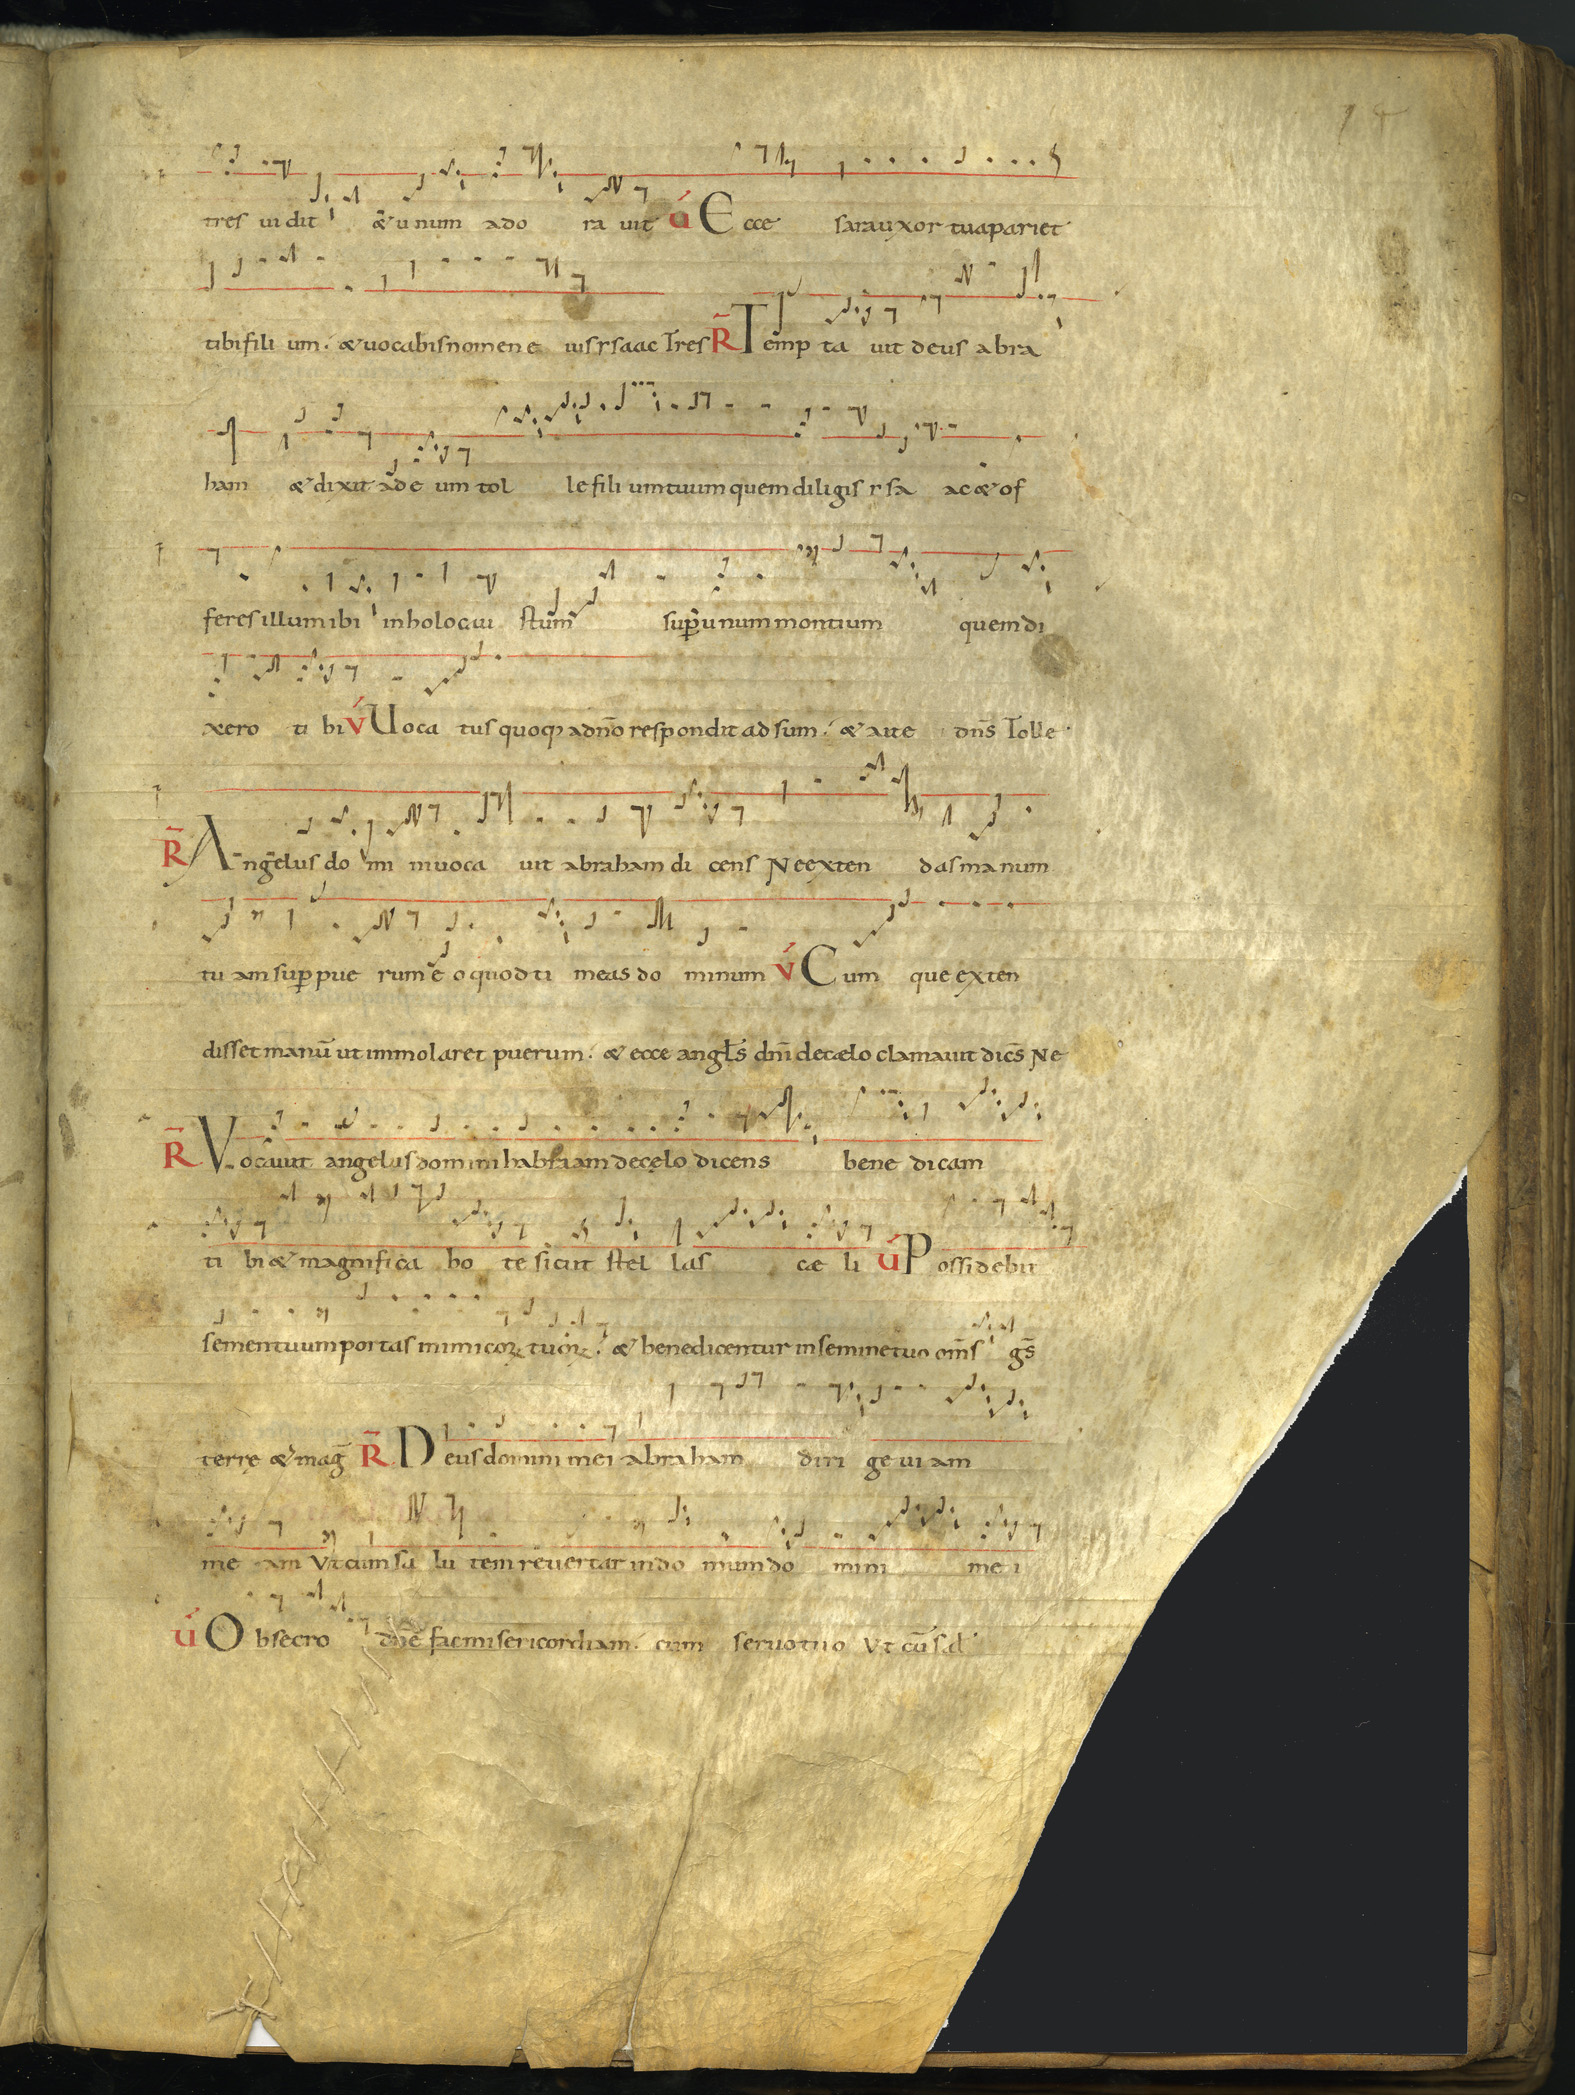 tres uidit & unum ado ra uit v̇ Ecce sara uxor tua pariet
tibi filium. & uocabis nomen eius ysaac Tres R̃ Temp ta uit deus abra
ham & dixit ad eum tol le filium tuum quem diligis ysa ac & of
feres illum ibi in holocau stum sup̄ unum montium quem di
xero ti bi v̇ Uoca tus quoq; a dn̄o respondit ad sum. & ait e dn̄s Tolle
R̃ Angelus do mi ni uoca uit abraham di cens Ne exten das manum
tu am sup̄ pue rum e o quod ti meas do minum v̇ Cum que exten
disset manū ut immolaret puerum. & ecce angl̄s dn̄i de cælo clamauit dic̄s Ne
R̃ Vocauit angelus domini habraam de cęlo dicens bene dicam
ti bi & magnifica bo te sicut stel las cæ li v̇ Possidebit
semen tuum portas inimicoꝝ tuoꝝ. & benedicentur in semine tuo om̄s gs̄
terrę & mag̃ R̃ Deus domini mei abraham diri ge ui am
me am Vt cum sa lu tem reuertar in do mum do mini me i
v̇ Obsecro dn̄e fac misericordiam. cum seruo tuo Vt cū sal